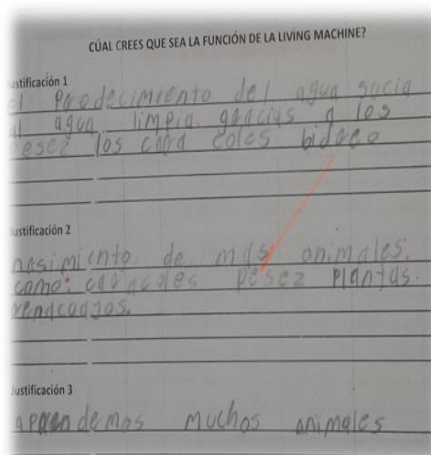 CÚAL CREES QUE SEA LA FUNCIÓN DE LA LIVING MACHINE?
ustificación 1
el Prodecimiento del agua sucia
al agua limpia gracias a los
pesez los cara coles
ustificación 2
nasimiento de mas animales.
como: caracoles pesez Plantas.
renacuajos.
Justificación 3
aprendemos muchos animales